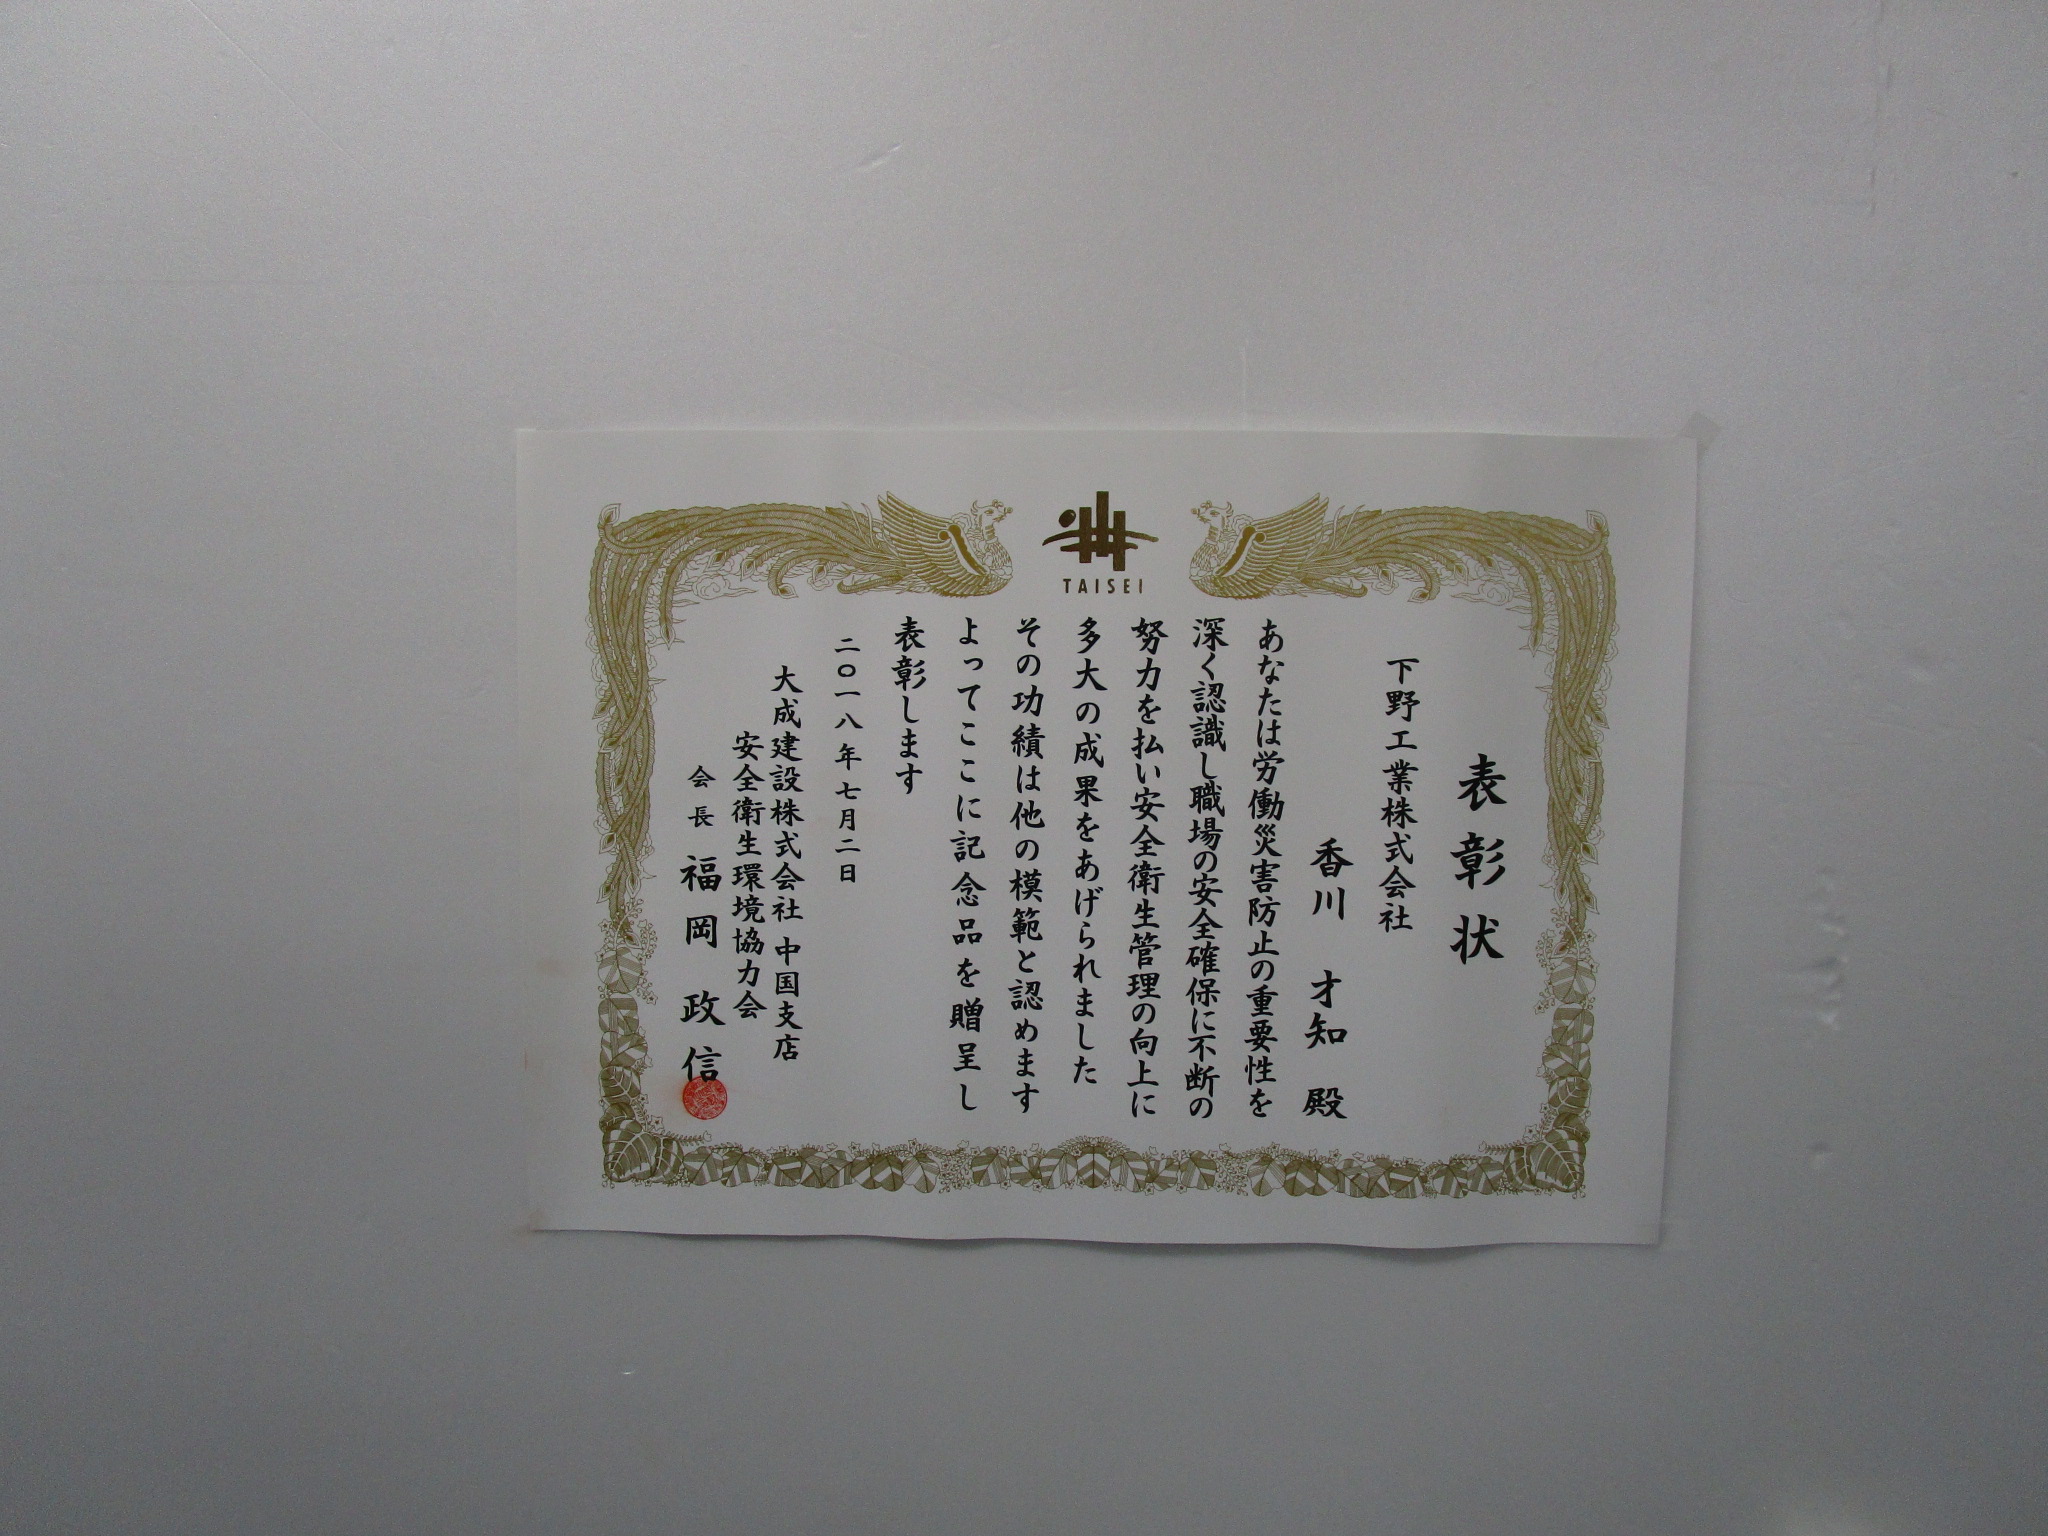 TAISEI
表彰状
下野工業株式会社
香川 才知 殿
あなたは労働災害防止の重要性を
深く認識し職場の安全確保に不断の
努力を払い安全衛生管理の向上に
多大の成果をあげられました
その功績は他の模範と認めます
よってここに記念品を贈呈し
表彰します
二〇一八年七月二日
大成建設株式会社 中国支店
安全衛生環境協力会
会長 福岡政信